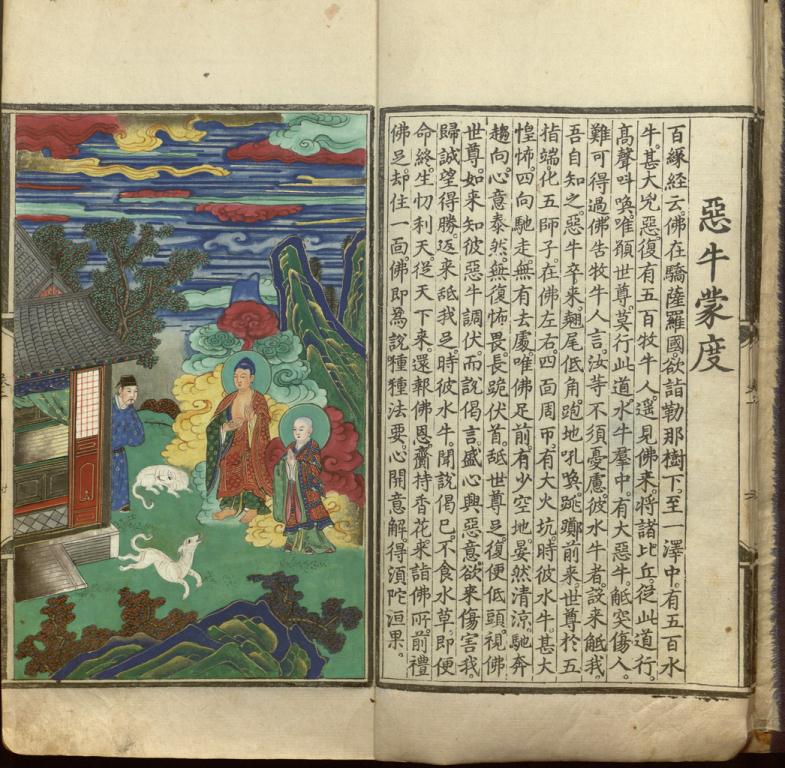 惡牛蒙度
百緣經云。佛在驕薩羅國。欲詣勒那樹下。至一澤中。有五百水
牛。甚大兇惡。復有五百牧牛人。遥見佛來。將諸比丘。從此道行。
高聲呌喚。唯願世尊。莫行此道。水牛羣中。有大惡牛。觝突傷人。
難可得過。佛告牧牛人言。汝等不須憂慮。彼水牛者。設來觝我。
吾自知之。惡牛卒來。翹尾低角。跑地吼喚。跳躑前來。世尊於五
指端。化五師子。在佛左右。四面周帀。有大火坑。時彼水牛。甚大
惶怖。四向馳走。無有去處。唯佛足前。有少空地。晏然清涼。馳奔
趨向。心意泰然。無復怖畏。長跪伏首。舐世尊足。復便低頭。視佛
世尊。如來知彼惡牛調伏。而說偈言。盛心興惡意。欲來傷害我。
歸誠望得勝。返來舐我足。時彼水牛。聞說偈已。不食水草。即便
命終。生忉利天。從天下來。還報佛恩。齎持香花。來詣佛所。前禮
佛足。却住一面。佛即為說種種法要。心開意解。得須陀洹果。